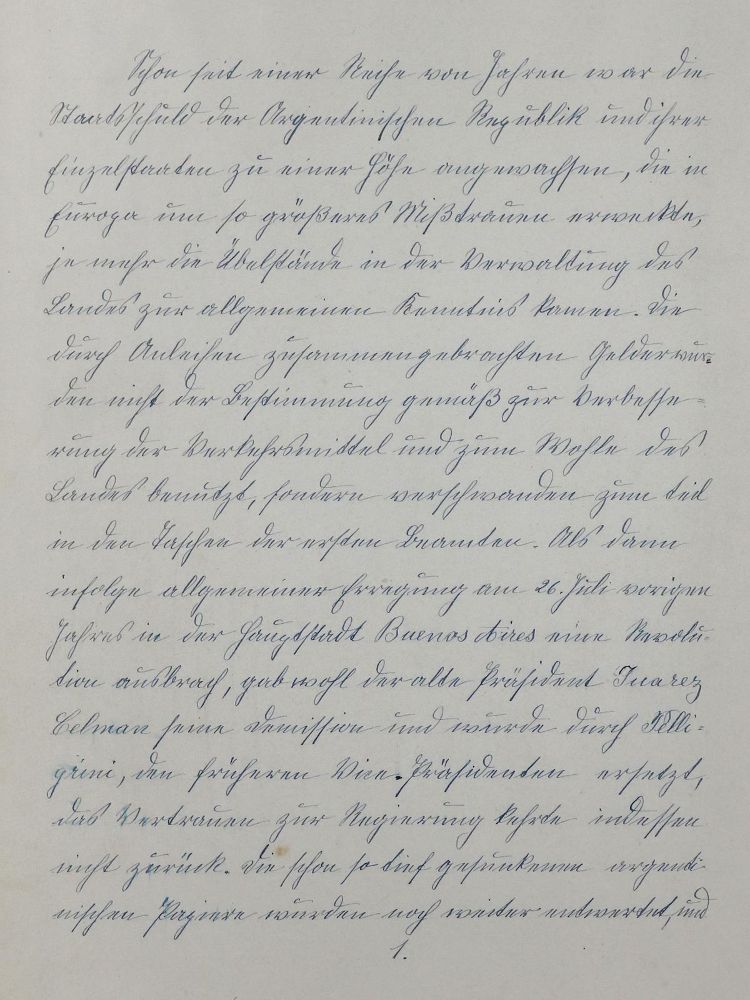 Schon seit einer Reihe von Jahren war die
Staatsschuld der Argentinischen Republik und ihrer
Einzelstaaten zu einer Höhe angewachsen, die in
Europa um so größeres Mißtrauen erweckte,
je mehr die Übelstände in der Verwaltung des
Landes zur allgemeinen Kenntnis kamen. Die
durch Anleihen zusammengebrachten Gelder wur=
den nicht der Bestimmung gemäß zur Verbesse=
rung der Verkehrsmittel und zum Wohle des
Landes benutzt, sondern verschwanden zum teil
in den Taschen der ersten Beamten. Als dann
infolge allgemeiner Erregung am 26. Juli vorigen
Jahres in der Hauptstadt Buenos Aires eine Revolu=
tion ausbrach, gab wohl der alte Präsident Juarez
Celman seine Demission und wurde durch Pelli=
grini, den früheren Vice-Präsidenten ersetzt,
das Vertrauen zur Regierung kehrte indessen
nicht zurück. Die schon so tief gesunkenen argenti
nischen Papiere wurden noch weiter entwertet, und
1.